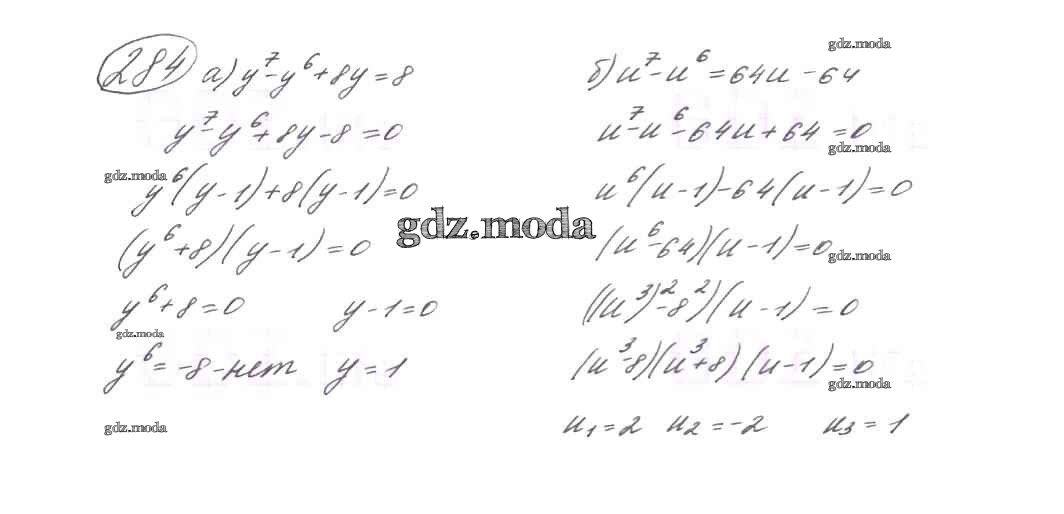 284 а) y⁷-y⁶+8y=8
y⁷-y⁶+8y-8=0
y⁶(y-1)+8(y-1)=0
(y⁶+8)(y-1)=0
y⁶+8=0 y-1=0
y⁶=-8-нет y=1
б) u⁷-u⁶=64u-64
u⁷-u⁶-64u+64=0
u⁶(u-1)-64(u-1)=0
(u⁶-64)(u-1)=0
((u³)²-8²)(u-1)=0
(u³-8)(u³+8)(u-1)=0
u₁=2 u₂=-2 u₃=1
gdz.moda
gdz.moda
gdz.moda
gdz.moda
gdz.moda
gdz.moda
gdz.moda
gdz.moda